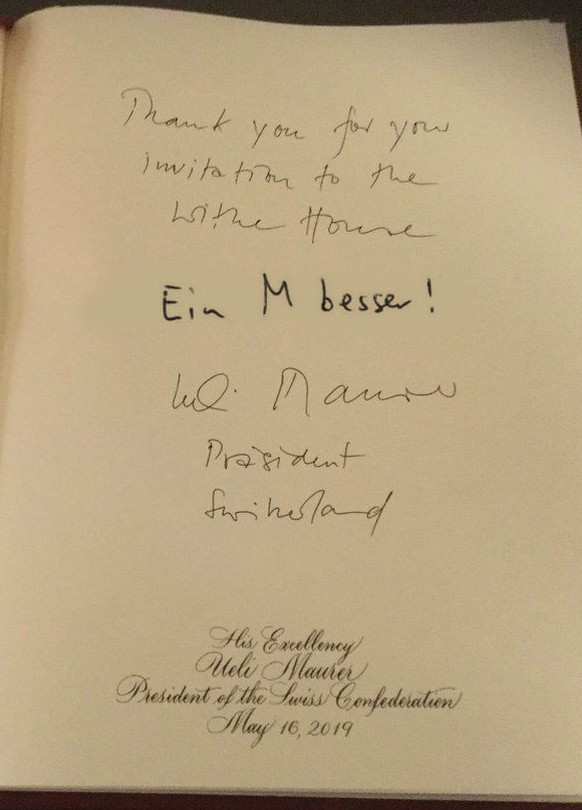 Thank you for your
invitation to the
Withe House
Ein M besser!
Ueli Maurer
Präsident
Switzerland
His Excellency
Ueli Maurer
President of the Swiss Confederation
May 16, 2019